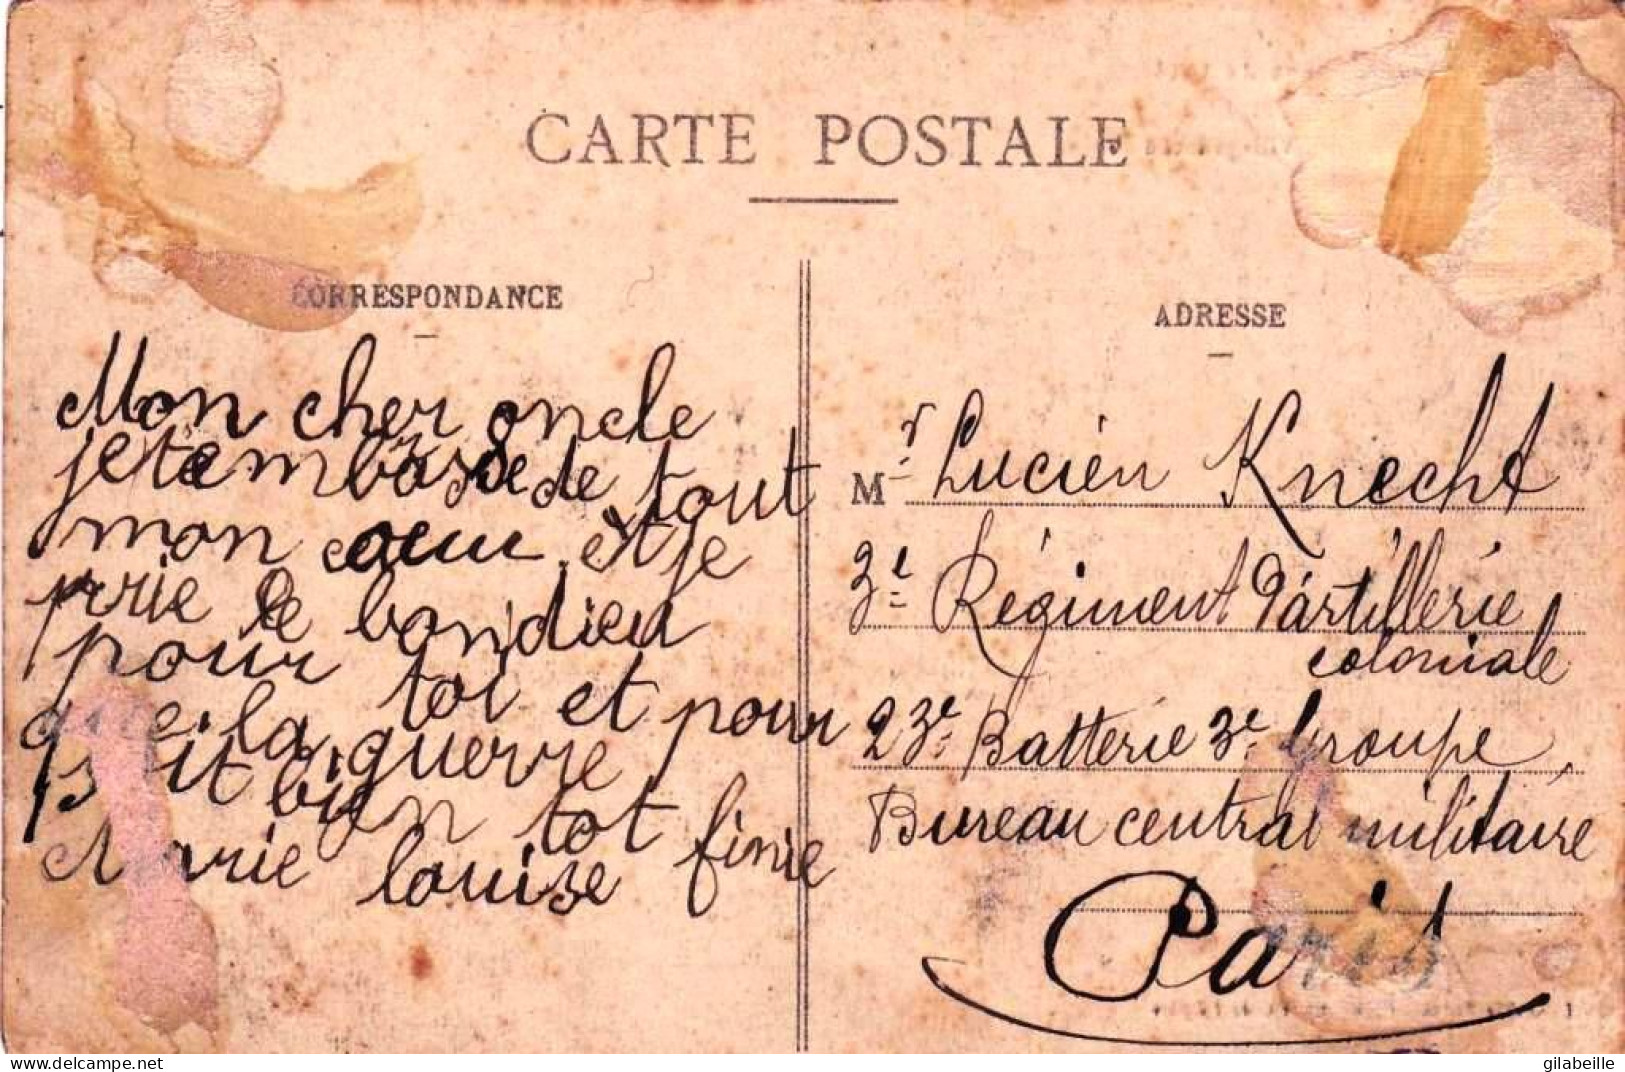 CARTE POSTALE
CORRESPONDANCE
Mon cher oncle
je tembrasse de tout
mon coeur et je
prie le bon dieu
pour toi et pour
que la guerre
soit bien tot finie
Marie louise
ADRESSE
Mr Lucien Knecht
3e Régiment d'artillerie
coloniale
23e Batterie 3e Groupe
Bureau central militaire
Paris
gilabeille